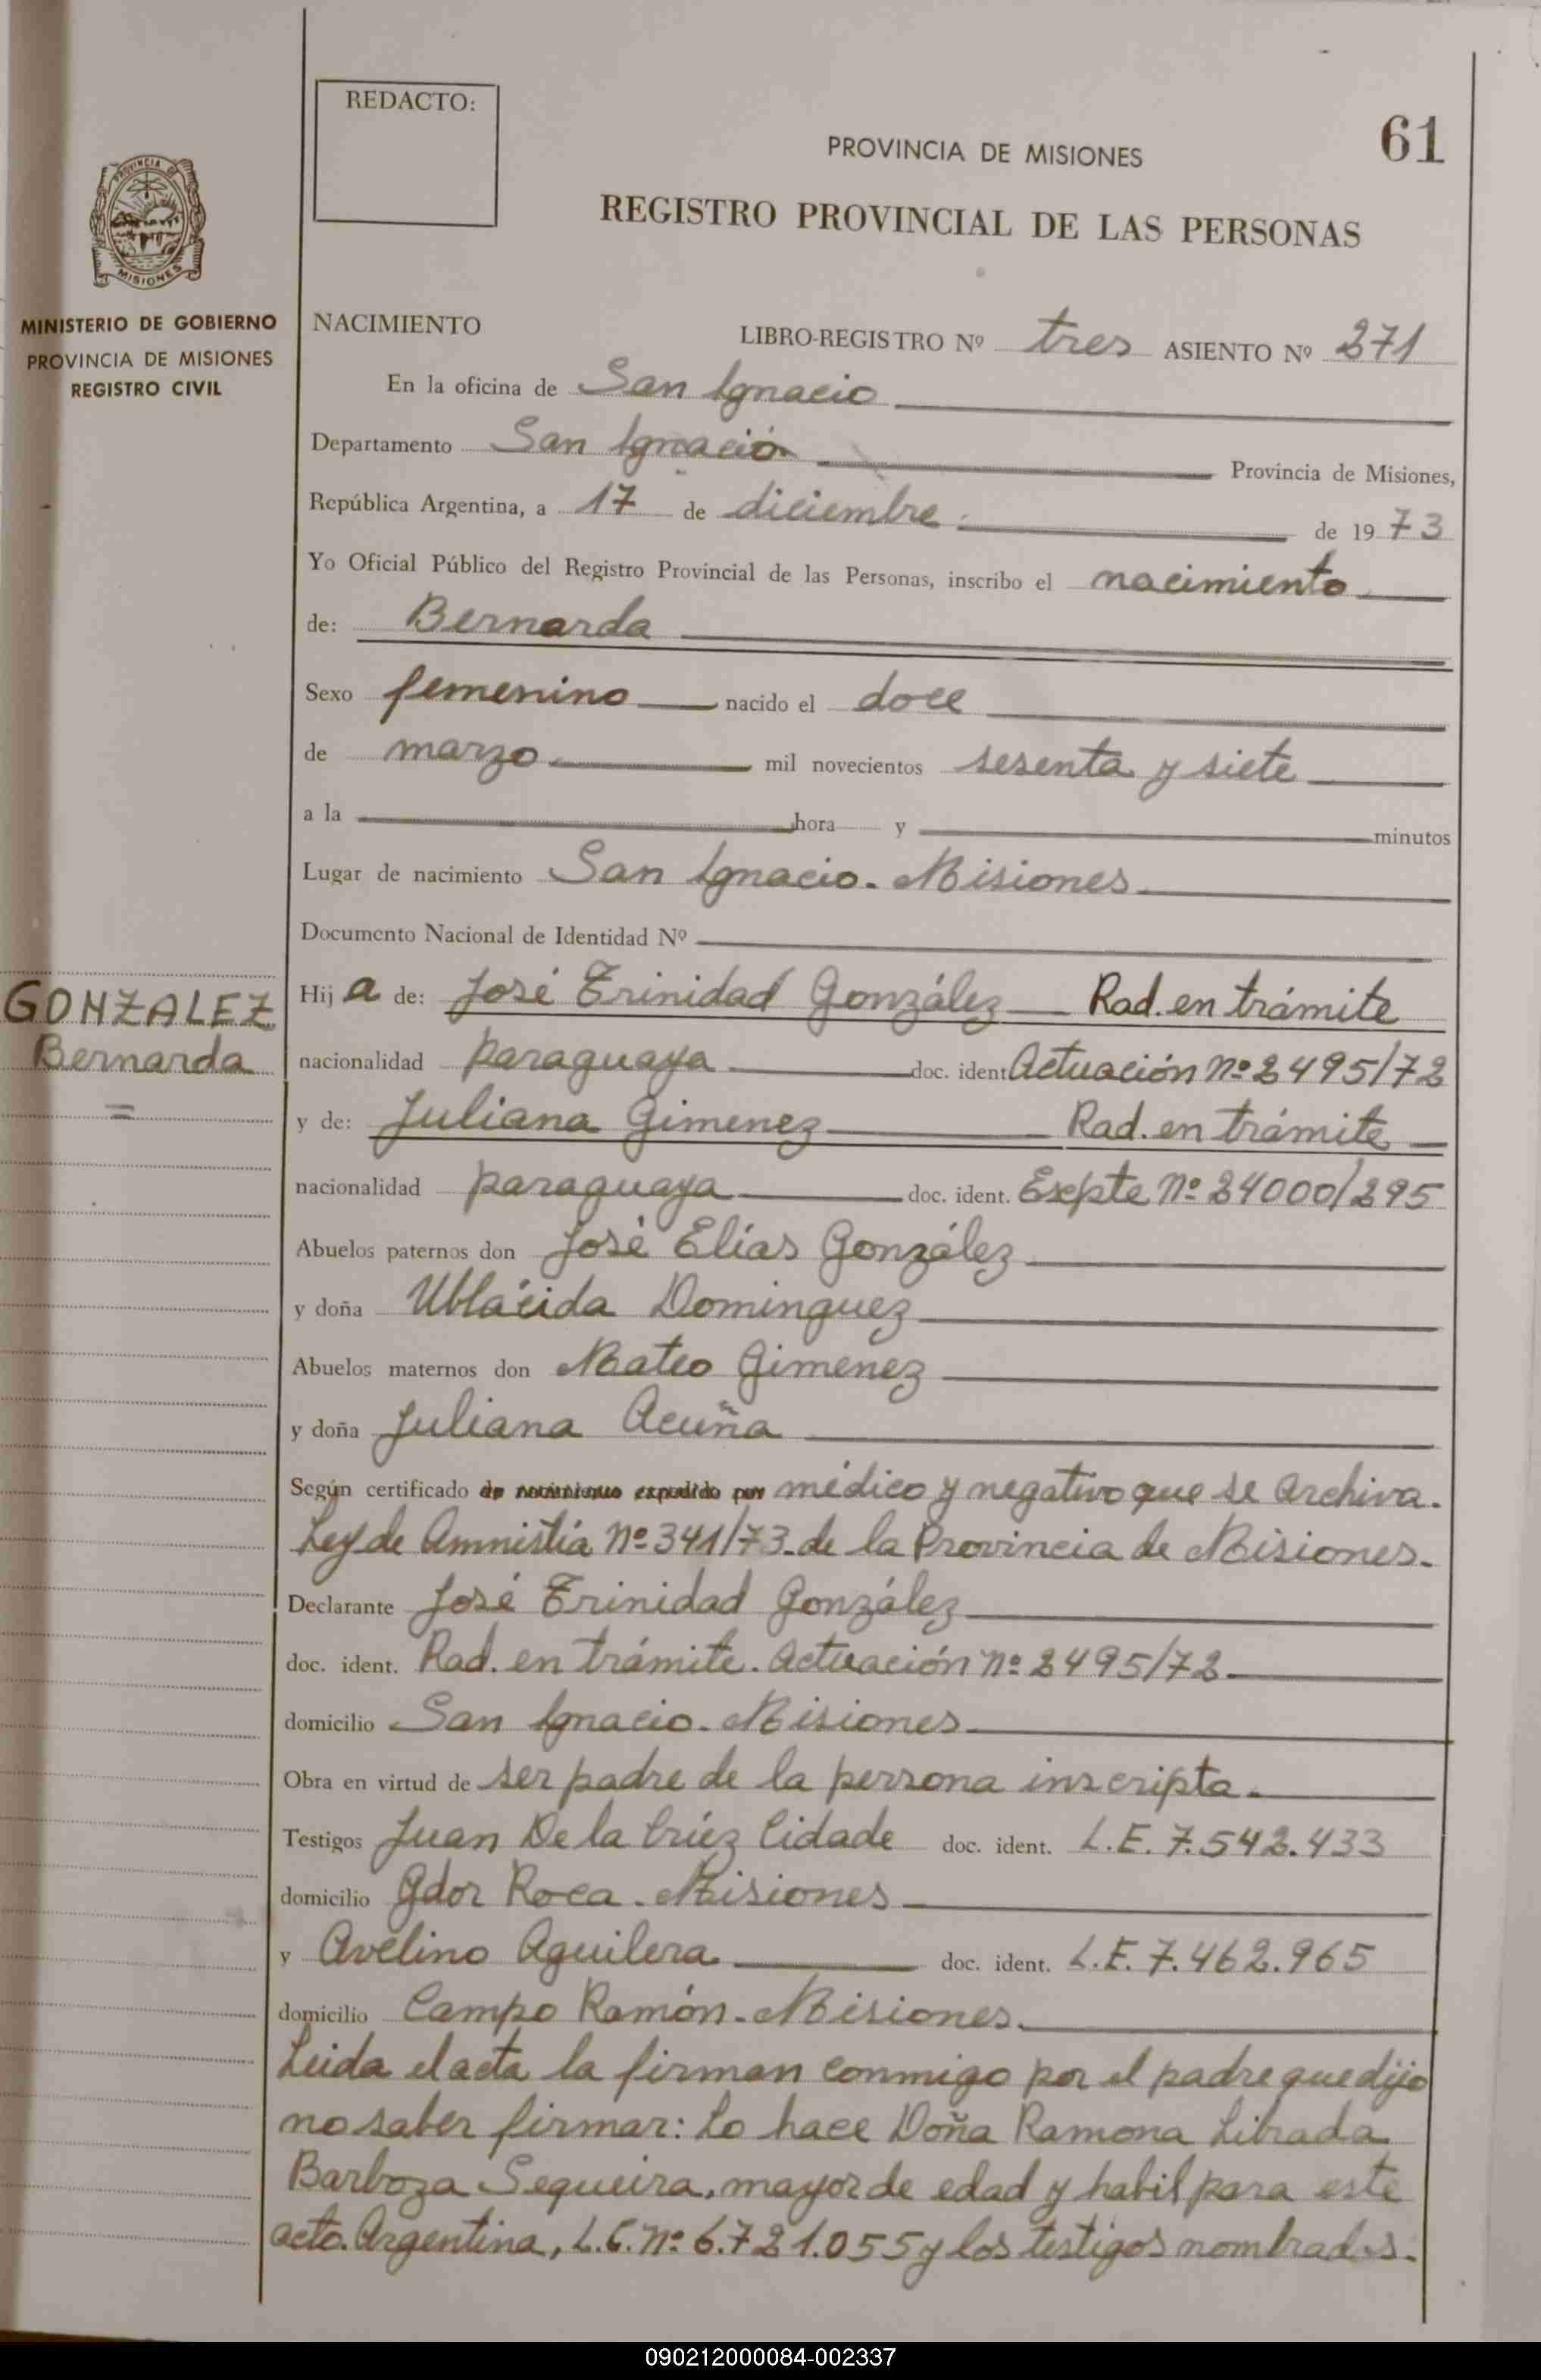 REDACTO:
61
PROVINCIA DE MISIONES
REGISTRO PROVINCIAL DE LAS PERSONAS
PROVINCIA DE
MISIONES
MINISTERIO DE GOBIERNO
PROVINCIA DE MISIONES
REGISTRO CIVIL
NACIMIENTO LIBRO-REGISTRO Nº tres ASIENTO Nº 271
En la oficina de San Ignacio
Departamento San Ignacio Provincia de Misiones,
República Argentina, a 17 de diciembre de 1973
Yo Oficial Público del Registro Provincial de las Personas, inscribo el nacimiento
de: Bernarda
Sexo femenino nacido el doce
de marzo mil novecientos sesenta y siete
a la hora y minutos
Lugar de nacimiento San Ignacio. Misiones
Documento Nacional de Identidad Nº
GONZALEZ
Bernarda
Hija de: José Trinidad González Rad. en trámite
nacionalidad paraguaya doc. ident Actuación nº 2495/72
y de: Juliana Gimenez Rad. en trámite
nacionalidad paraguaya doc. ident. Expte nº 24000/295
Abuelos paternos don José Elías González
y doña Ublácida Dominguez
Abuelos maternos don Mateo Gimenez
y doña Juliana Acuña
Según certificado de nacimiento expedido por médico y negativo que se archiva.
Ley de Amnistía nº 341/73. de la Provincia de Misiones.
Declarante José Trinidad González
doc. ident. Rad. en trámite. Actuación nº 2495/72.
domicilio San Ignacio. Misiones
Obra en virtud de ser padre de la persona inscripta.
Testigos Juan De la Crúz Cidade doc. ident. L.E. 7.542.433
domicilio Gdor Roca. Misiones
y Avelino Aguilera doc. ident. L.E. 7.462.965
domicilio Campo Ramón. Misiones.
Leida el acta la firman conmigo por el padre que dijo
no saber firmar: Lo hace Doña Ramona Librada
Barboza Sequeira, mayor de edad y habil para este
acto. Argentina, L.C. nº 6.721.055 y los testigos nombrados.
090212000084-002337